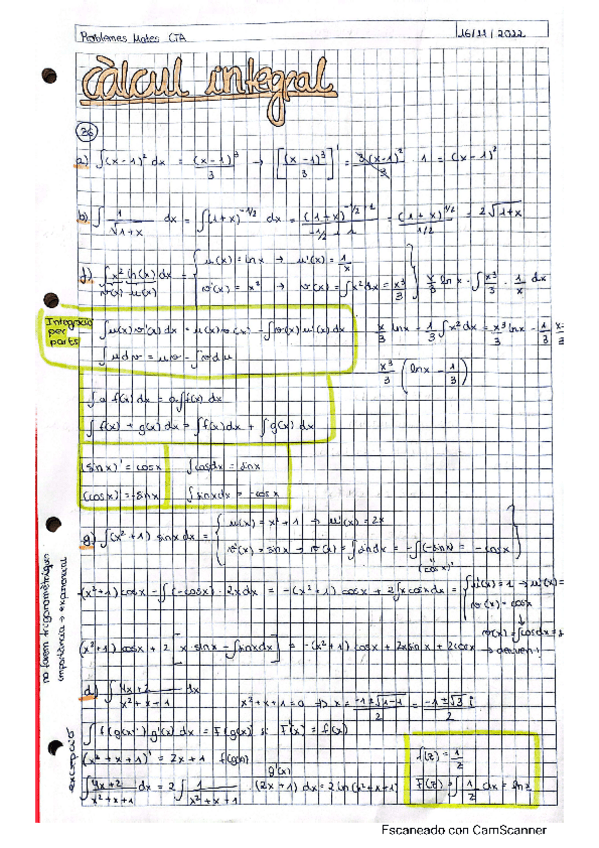 Problemes Mates CTA 16/11/2022
càlcul integral
36
a) ∫(x-1)² dx = (x-1)³/3 → [(x-1)³/3]' = 3(x-1)²/3 · 1 = (x-1)²
b) ∫ 1/√1+x dx = ∫(1+x)^-1/2 dx = (1+x)^-1/2+1 / -1/2+1 = (1+x)^1/2 / 1/2 = 2√1+x
f) ∫x² ln(x) dx = { u(x) = lnx → u'(x) = 1/x
v'(x) u(x) v'(x) = x² → v(x) = ∫x²dx = x³/3 } x/3 lnx - ∫x³/3 · 1/x dx
Integració per parts
∫u(x)v'(x) dx = u(x)v(x) - ∫v(x) u'(x) dx
x/3 lnx - 1/3 ∫x² dx = x³/3 lnx - 1/3
∫u dv = uv - ∫v du
x³/3 (lnx - 1/3)
∫a f(x) dx = a∫f(x) dx
∫f(x) + g(x) dx = ∫f(x) dx + ∫g(x) dx
(sinx)' = cosx ∫cosdx = sinx
(cosx)' = -sinx ∫sinxdx = -cosx
g) ∫(x²+1) sinx dx = { u(x) = x²+1 → u'(x) = 2x
v'(x) = sinx → v(x) = ∫sindx = -∫(-sinx) = -cosx
(cosx)'
-(x²+1) cosx - ∫(-cosx) · 2x dx = -(x²+1) cosx + 2∫x cosxdx = { u(x) = 1 → u'(x) =
v'(x) = cosx
v(x) = ∫cosdx =
(x²+1) cosx + 2 [x·sinx - ∫sinxdx] = -(x²+1) cosx + 2xsinx + 2cosx → deriven!
no farem trigonomètriques
importància → exponencial
d) ∫ 4x+2 / x²+x+1 dx x²+x+1=0 => x = -1±√1-4 / 2 = -1±√3 i / 2
∫f(g(x)) g'(x) dx = F(g(x)) si F'(x) = f(x)
(x²+x+1)' = 2x+1 f(g(x)) g'(x)
∫ 4x+2 / x²+x+1 dx = 2∫ 1 / x²+x+1 · (2x+1) dx = 2 ln(x²+x+1)
excepció
f(z) = 1/z
F(z) = ∫ 1/z dx = ln z
Escaneado con CamScanner